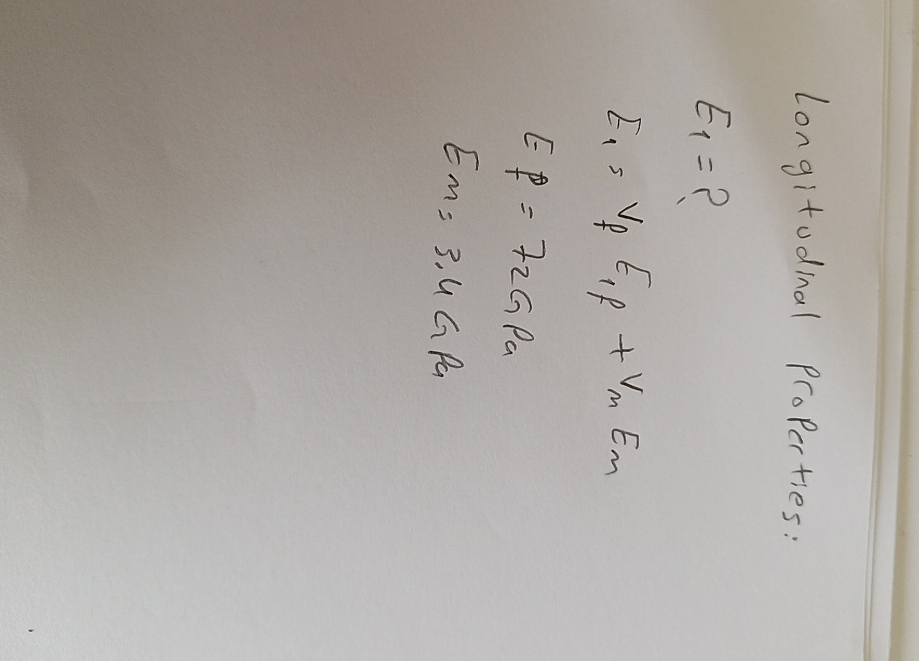 Longitudinal Properties:
E₁ = ?
E₁ = Vf E₁f + Vm Em
Ef = 72 GPa
Em = 3,4 GPa